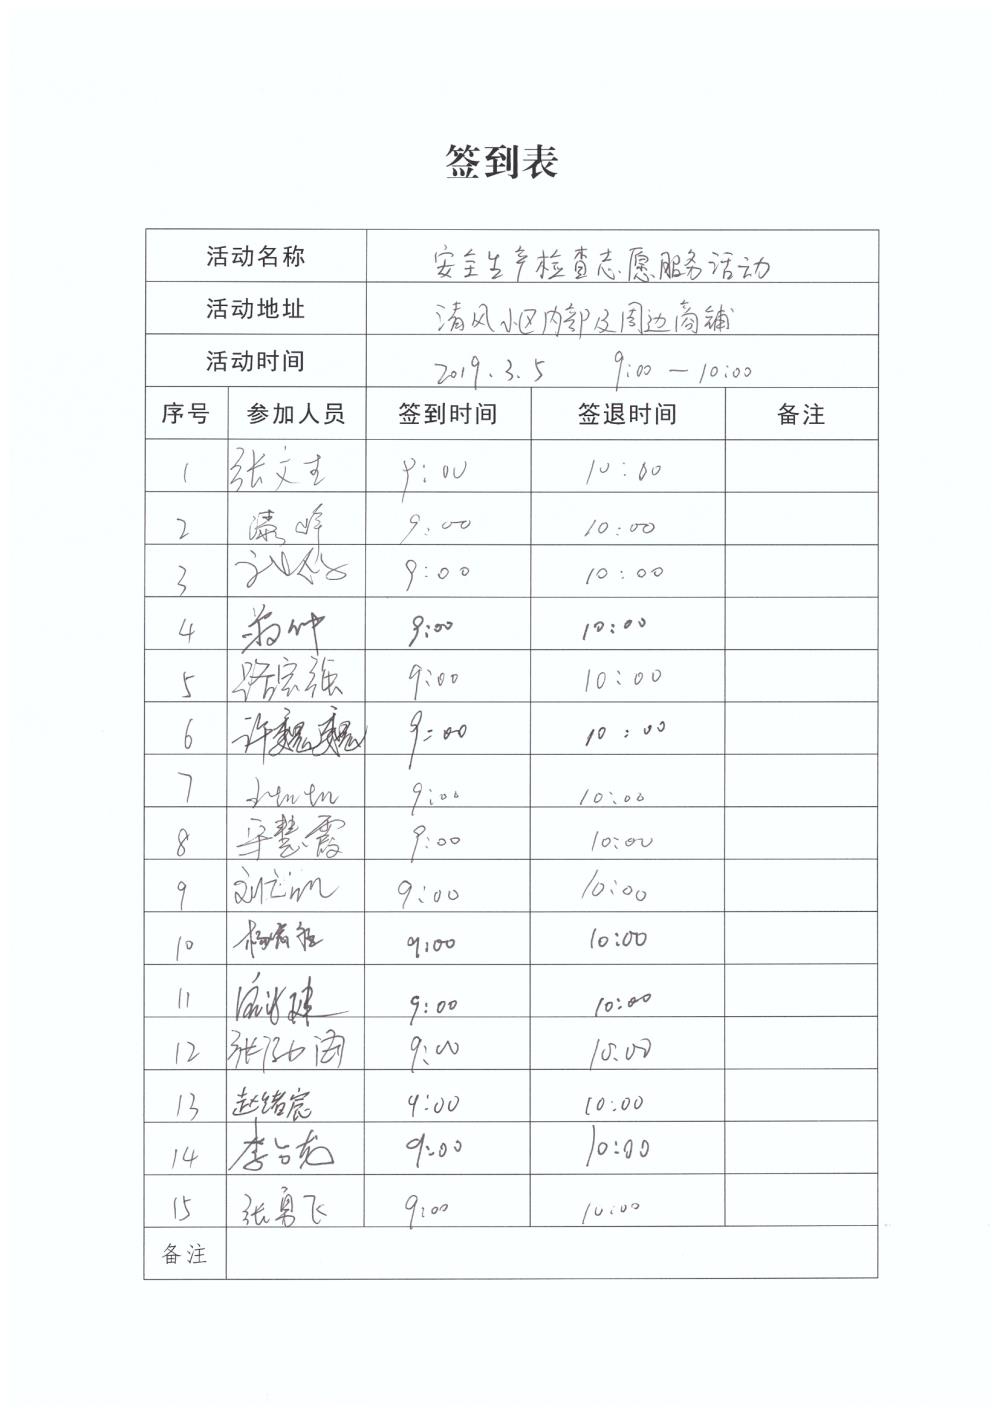 签到表
活动名称 安全生产检查志愿服务活动
活动地址 清风小区内部及周边商铺
活动时间 2019.3.5 9:00 — 10:00
序号 参加人员 签到时间 签退时间 备注
1 张文生 9:00 10:00
2 9:00 10:00
3 9:00 10:00
4 9:00 10:00
5 路宏强 9:00 10:00
6 许巍巍 9:00 10:00
7 9:00 10:00
8 慧霞 9:00 10:00
9 9:00 10:00
10 9:00 10:00
11 9:00 10:00
12 9:00 10:00
13 赵绪宸 9:00 10:00
14 9:00 10:00
15 张勇飞 9:00 10:00
备注